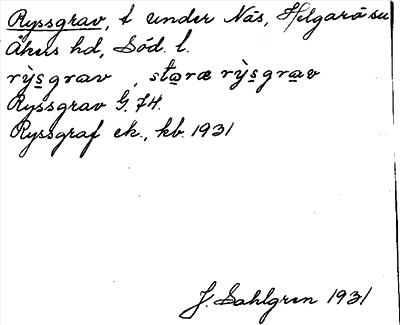 Ryssgrav, t under Näs, Helgarö sn
Åkers hd, Söd. l.
rỳs̱grav , sta̱ræ rỳs̱gra̱v
Ryssgrav G. 74.
Ryssgraf ek., kb. 1931
J. Sahlgren 1931